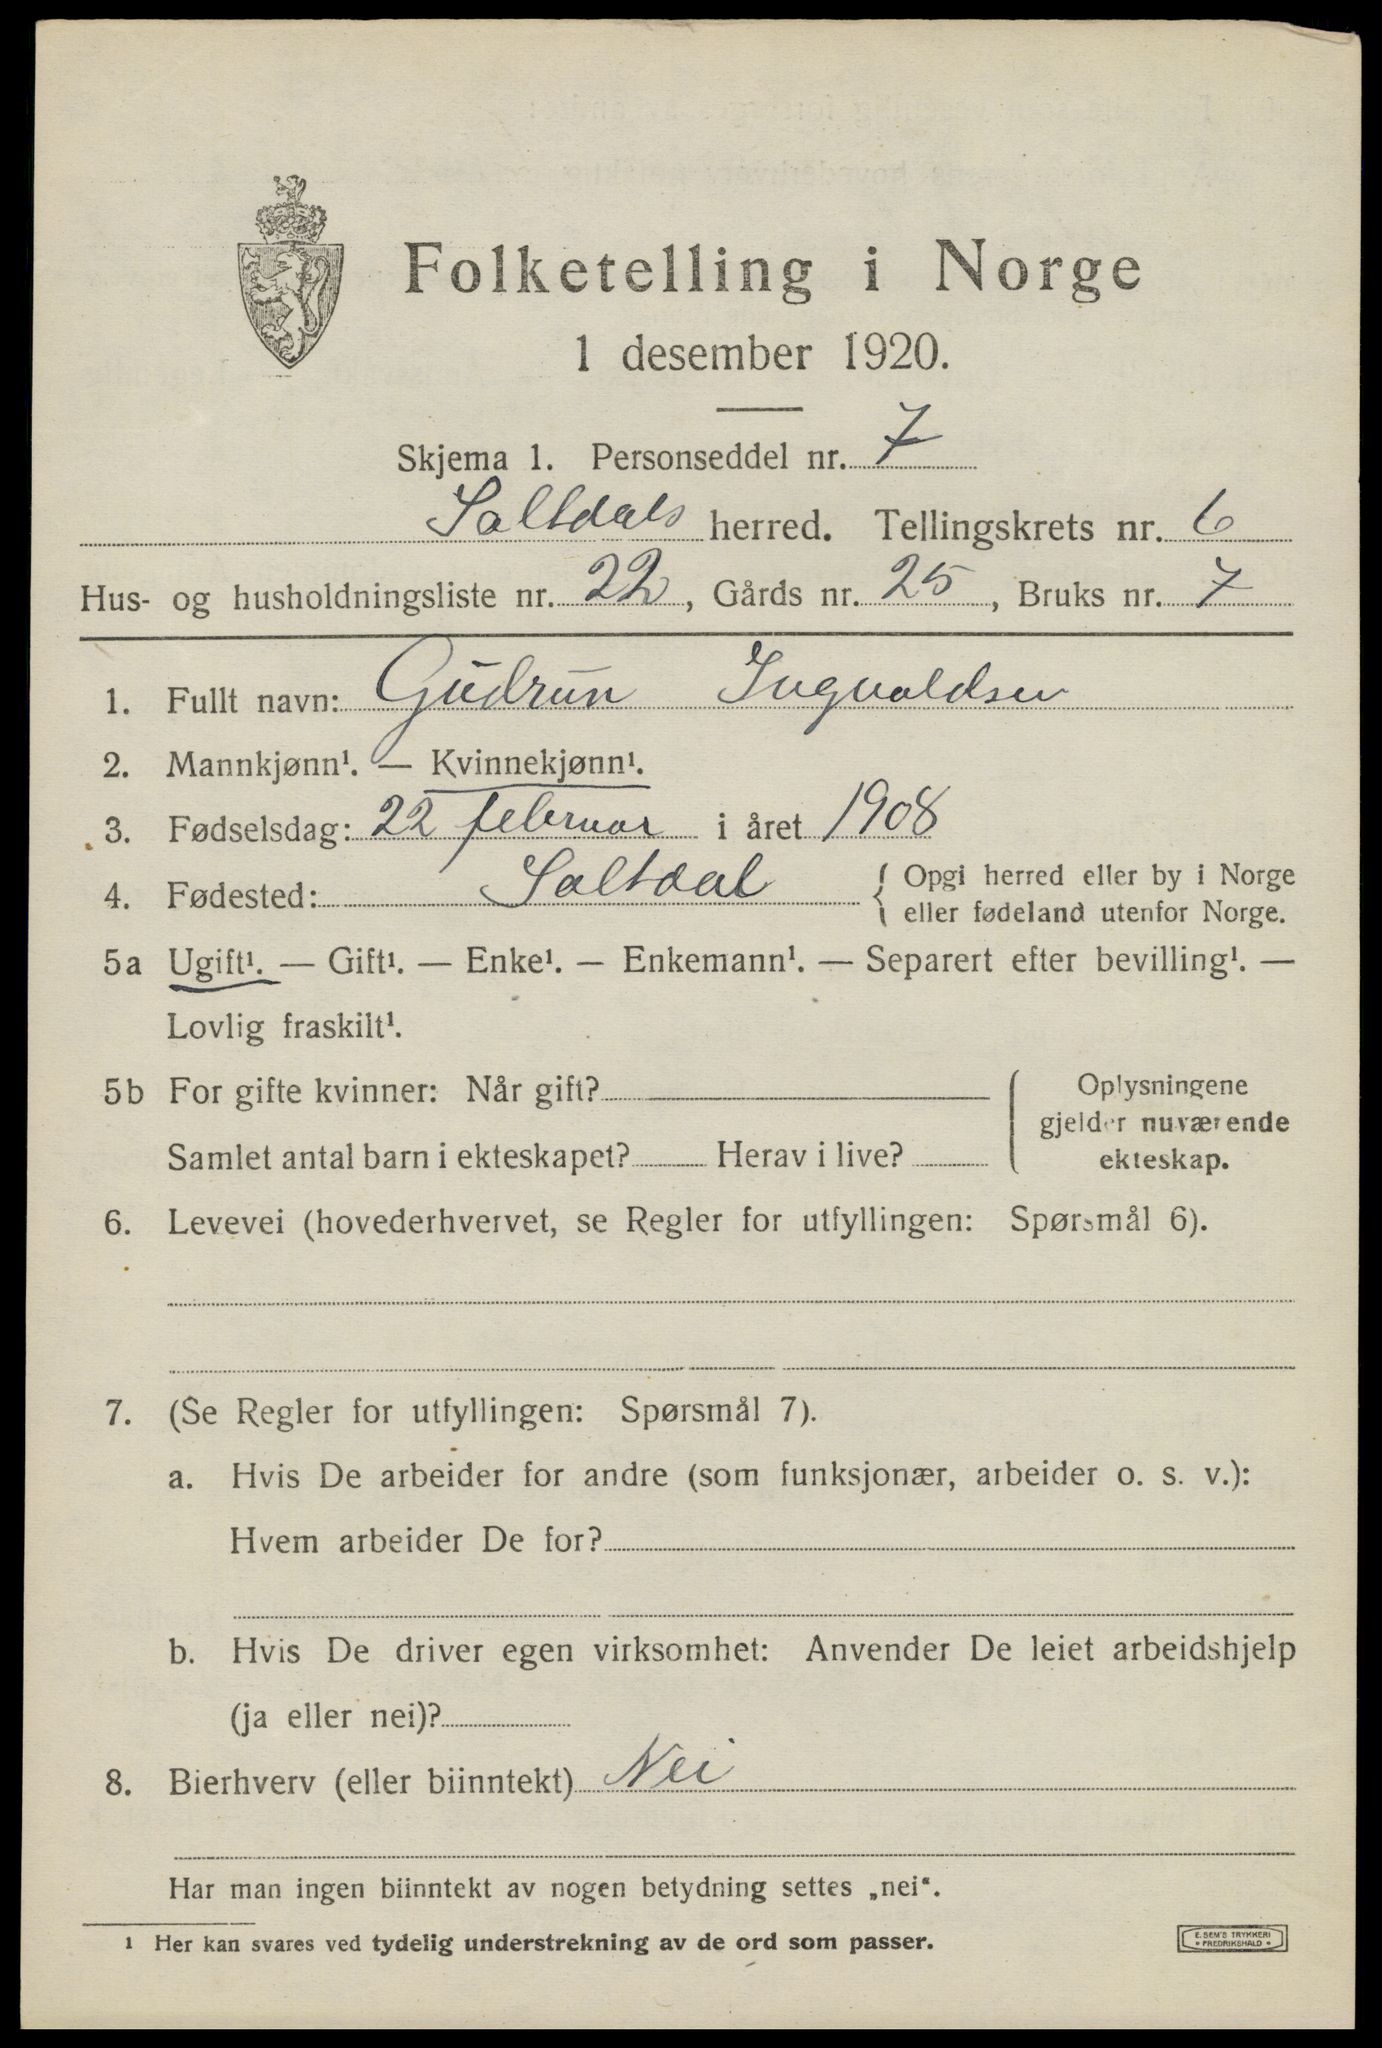 Folketelling i Norge
1 desember 1920.
Skjema 1. Personseddel nr. 7
Saltdals herred. Tellingskrets nr. 6
Hus- og husholdningsliste nr. 22, Gårds nr. 25, Bruks nr. 7
1. Fullt navn: Gudrun Ingvaldsen
2. Mannkjønn¹. — Kvinnekjønn¹.
3. Fødselsdag: 22 februar i året 1908
4. Fødested: Saltdal { Opgi herred eller by i Norge
eller fødeland utenfor Norge.
5a Ugift¹. — Gift¹. — Enke¹. — Enkemann¹. — Separert efter bevilling¹. —
Lovlig fraskilt¹.
5b For gifte kvinner: Når gift?
Samlet antal barn i ekteskapet? Herav i live?
Oplysningene
gjelder nuværende
ekteskap.
6. Levevei (hovederhvervet, se Regler for utfyllingen: Spørsmål 6).
7. (Se Regler for utfyllingen: Spørsmål 7).
a. Hvis De arbeider for andre (som funksjonær, arbeider o. s. v.):
Hvem arbeider De for?
b. Hvis De driver egen virksomhet: Anvender De leiet arbeidshjelp
(ja eller nei)?
8. Bierhverv (eller biinntekt) Nei
Har man ingen biinntekt av nogen betydning settes „nei“.
¹ Her kan svares ved tydelig understrekning av de ord som passer.
E. SEM'S TRYKKERI
• FREDRIKSHALD •